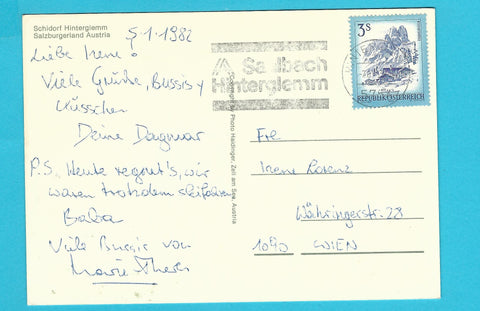 Schidorf Hinterglemm
Salzburgerland Austria
5.1.1982
Liebe Irene!
Viele Grüße, Bussis +
Küsschen
Deine Dagmar
P.S. Heute regnet's, wir
waren trotzdem skifahren
Baba
Viele Bussis von
Marie Theres
Saalbach
Hinterglemm
3s
REPUBLIK ÖSTERREICH
Photo Haidinger, Zell am See, Austria
Frl.
Irene Lorenz
Währingerstr. 28
1090 WIEN